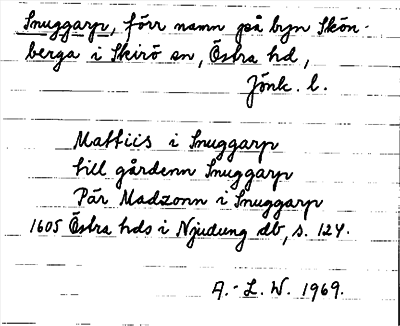 Snuggarp, förr namn på byn Skön-
berga i Skirö sn, Östra hd,
Jönk. l.
Mattiis i Snuggarp
till gårdenn Snuggarp
Pär Madzonn i Snuggarp
1605 Östra hds i Njudung db, s. 124.
A.-L.W. 1969.